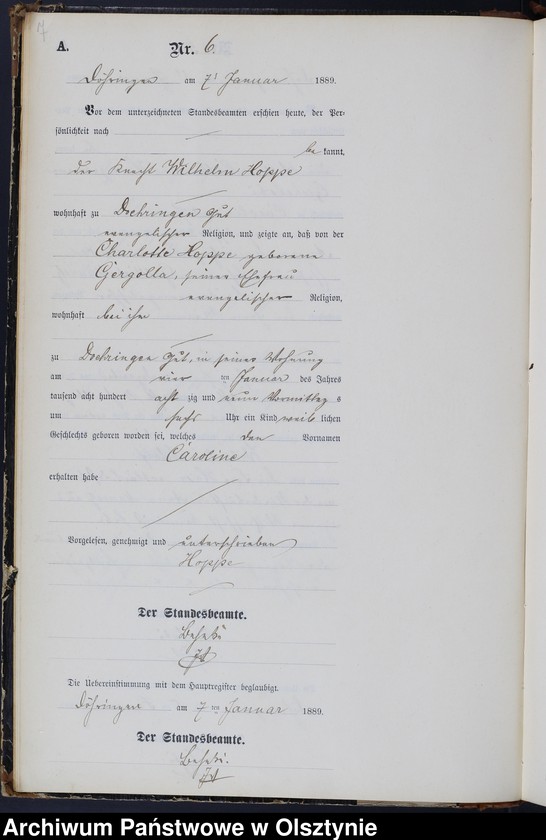 A. Nr. 6.
Döhringen am 7ᵗ Januar 1889.
Vor dem unterzeichneten Standesbeamten erschien heute, der Per-
sönlichkeit nach
be kannt,
der Knecht Wilhelm Hoppe
wohnhaft zu Doehringen Gut
evangelischer Religion, und zeigte an, daß von der
Charlotte Hoppe geborene
Gergolla, seiner Ehefrau
evangelischer Religion,
wohnhaft bei ihm
zu Doehringen Gut, in seiner Wohnung
am vier ten Januar des Jahres
tausend acht hundert acht zig und neun Vormittag s
um sechs Uhr ein Kind weib lichen
Geschlechts geboren worden sei, welches den Vornamen
Caroline
erhalten habe
Vorgelesen, genehmigt und unterschrieben
Hoppe
Der Standesbeamte.
Die Uebereinstimmung mit dem Hauptregister beglaubigt.
Döhringen am 7 ten Januar 1889.
Der Standesbeamte.
Archiwum Państwowe w Olsztynie